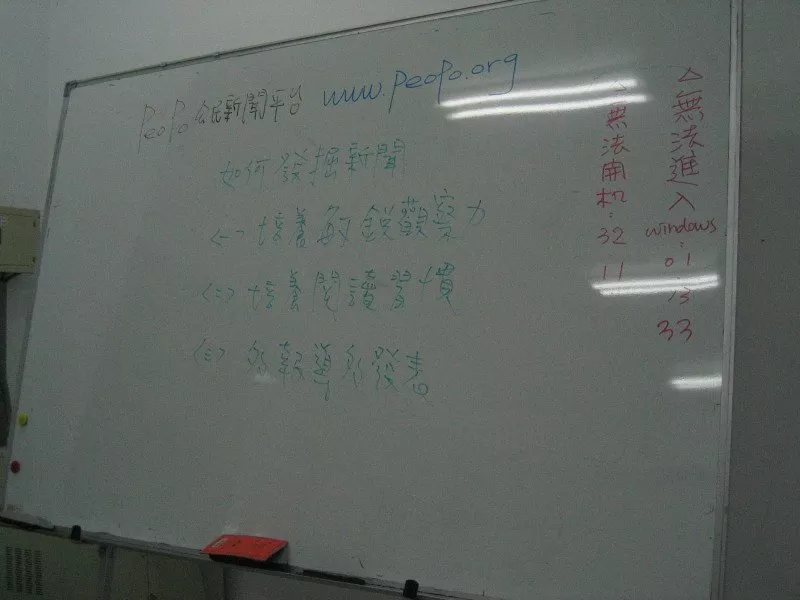 PeoPo 公民新聞平台 www.peopo.org
如何發掘新聞
(一) 培養敏銳觀察力
(二) 培養閱讀習慣
(三) 多報導多發表
△無法進入
windows:
01
13
33
△無法開机:
32
11